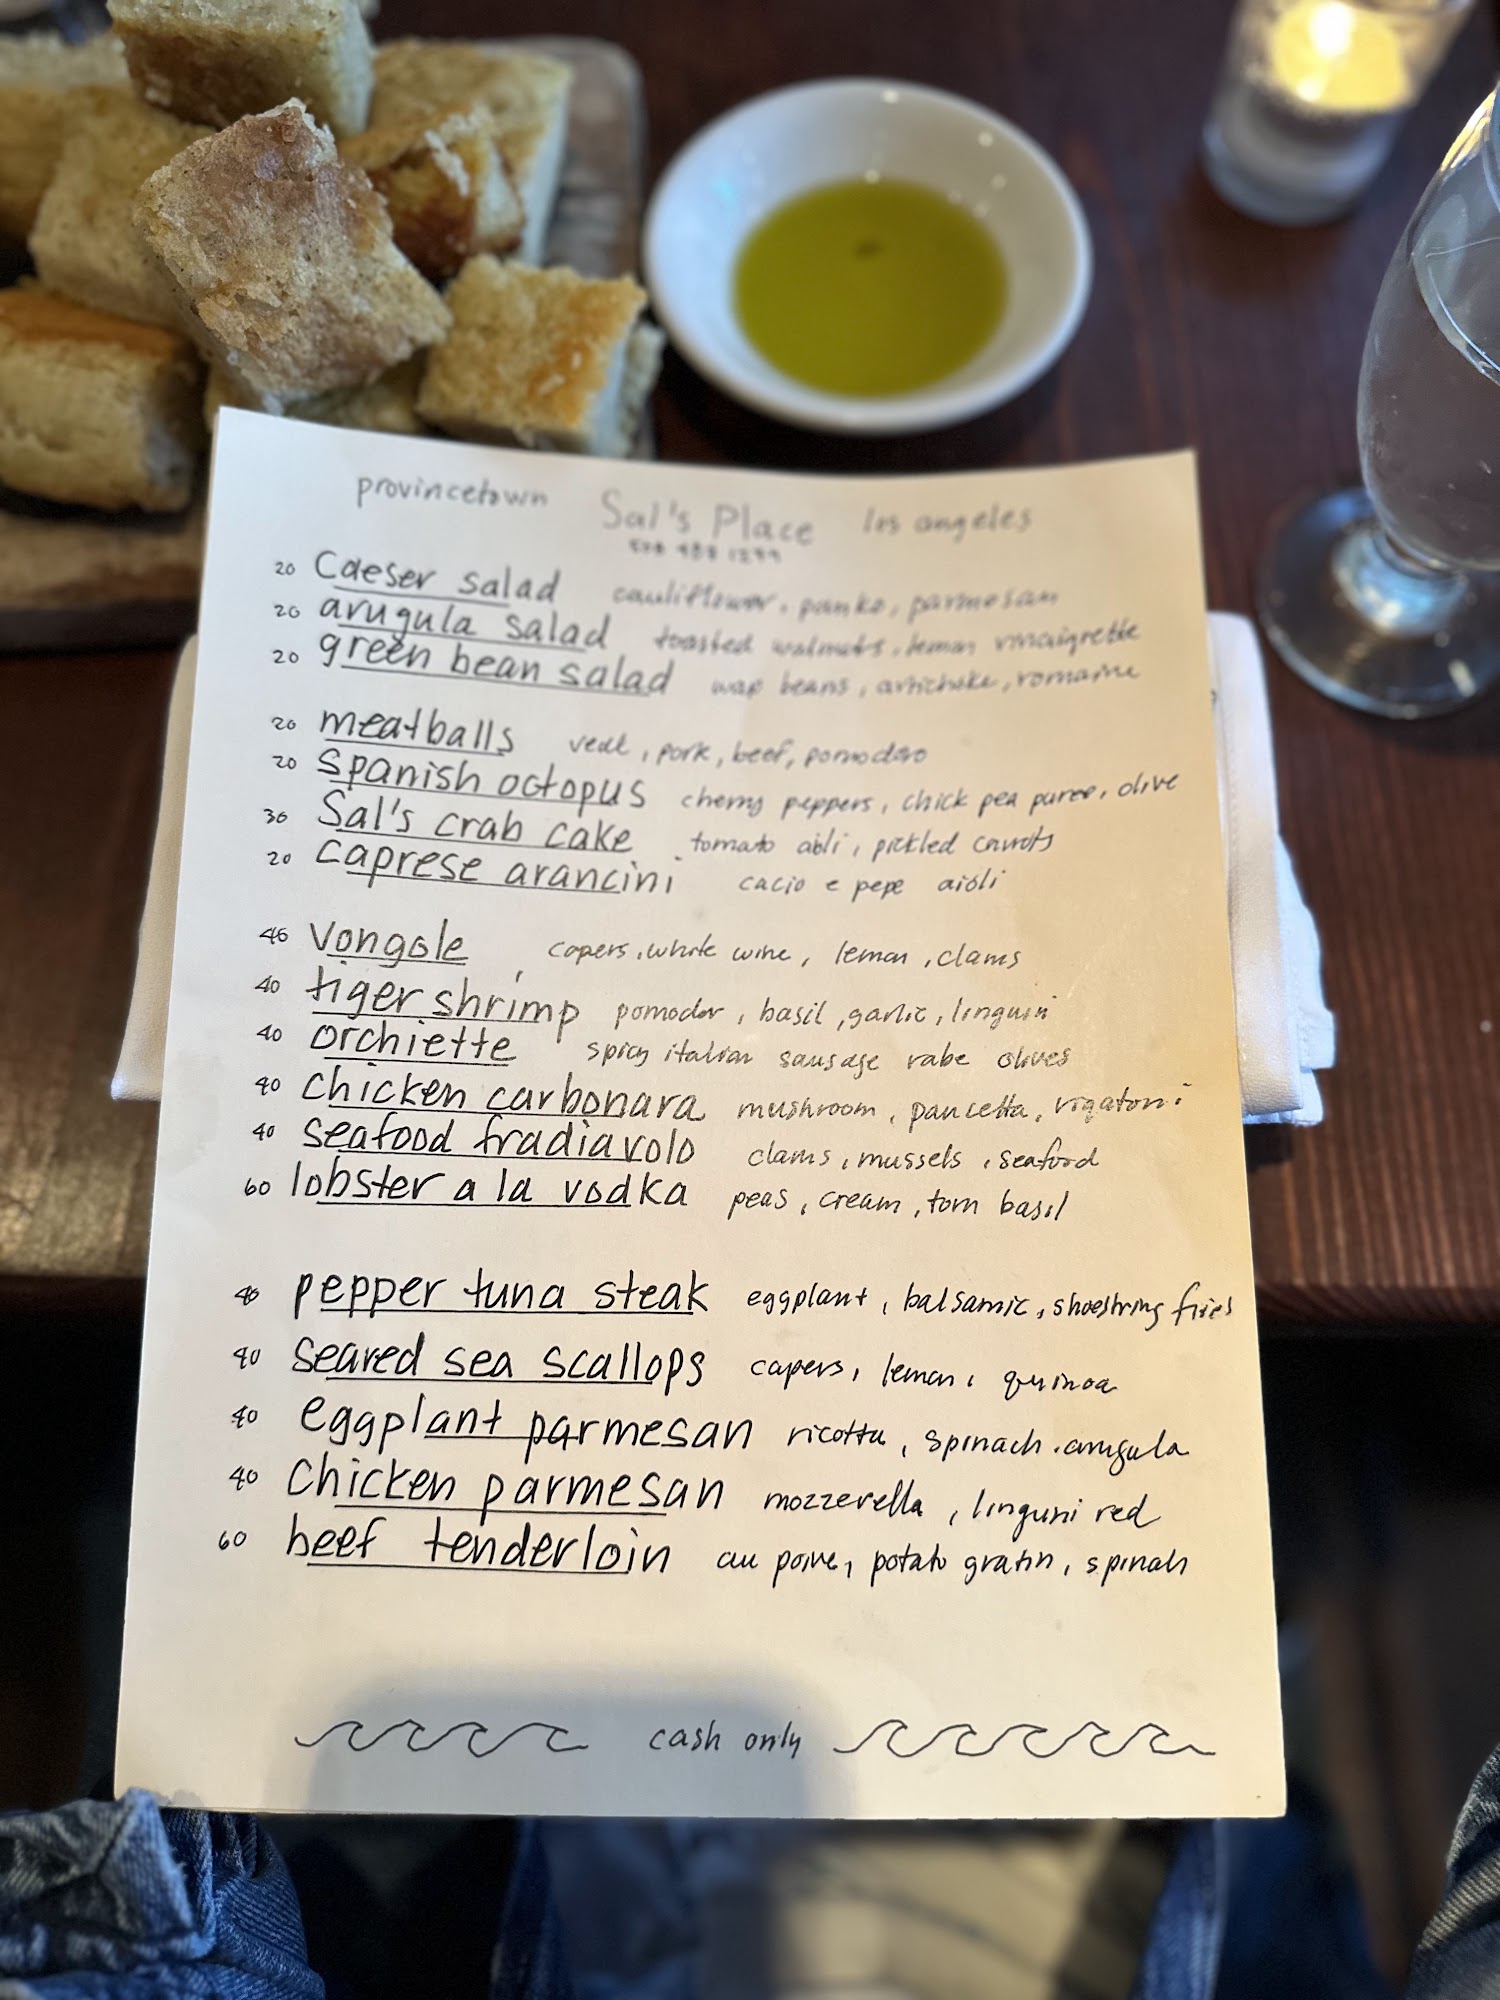 provincetown Sal's Place los angeles
20 Caeser salad cauliflower, panko, parmesan
20 arugula salad toasted walnuts, lemon vinaigrette
20 green bean salad wax beans, artichoke, romaine
20 meatballs veal, pork, beef, pomodoro
20 Spanish octopus cherry peppers, chick pea puree, olive
30 Sal's crab cake tomato aioli, pickled carrots
20 caprese arancini cacio e pepe aioli
vongole capers, white wine, lemon, clams
40 tiger shrimp pomodor, basil, garlic, linguini
40 orchiette spicy italian sausage rabe olives
40 chicken carbonara mushroom, pancetta, rigatoni
40 seafood fradiavolo clams, mussels, seafood
60 lobster a la vodka peas, cream, torn basil
pepper tuna steak eggplant, balsamic, shoestring fries
40 seared sea scallops capers, lemon, quinoa
40 eggplant parmesan ricotta, spinach, arugula
40 chicken parmesan mozzerella, linguni red
60 beef tenderloin au poive, potato gratin, spinah
cash only